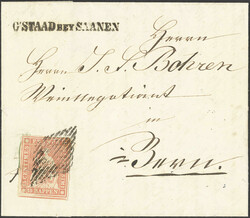 G'STAAD BEY SAANEN
Herrn
Herrn J. S. Bohren
Weinnegotiant
in
Bern.
RAPPEN